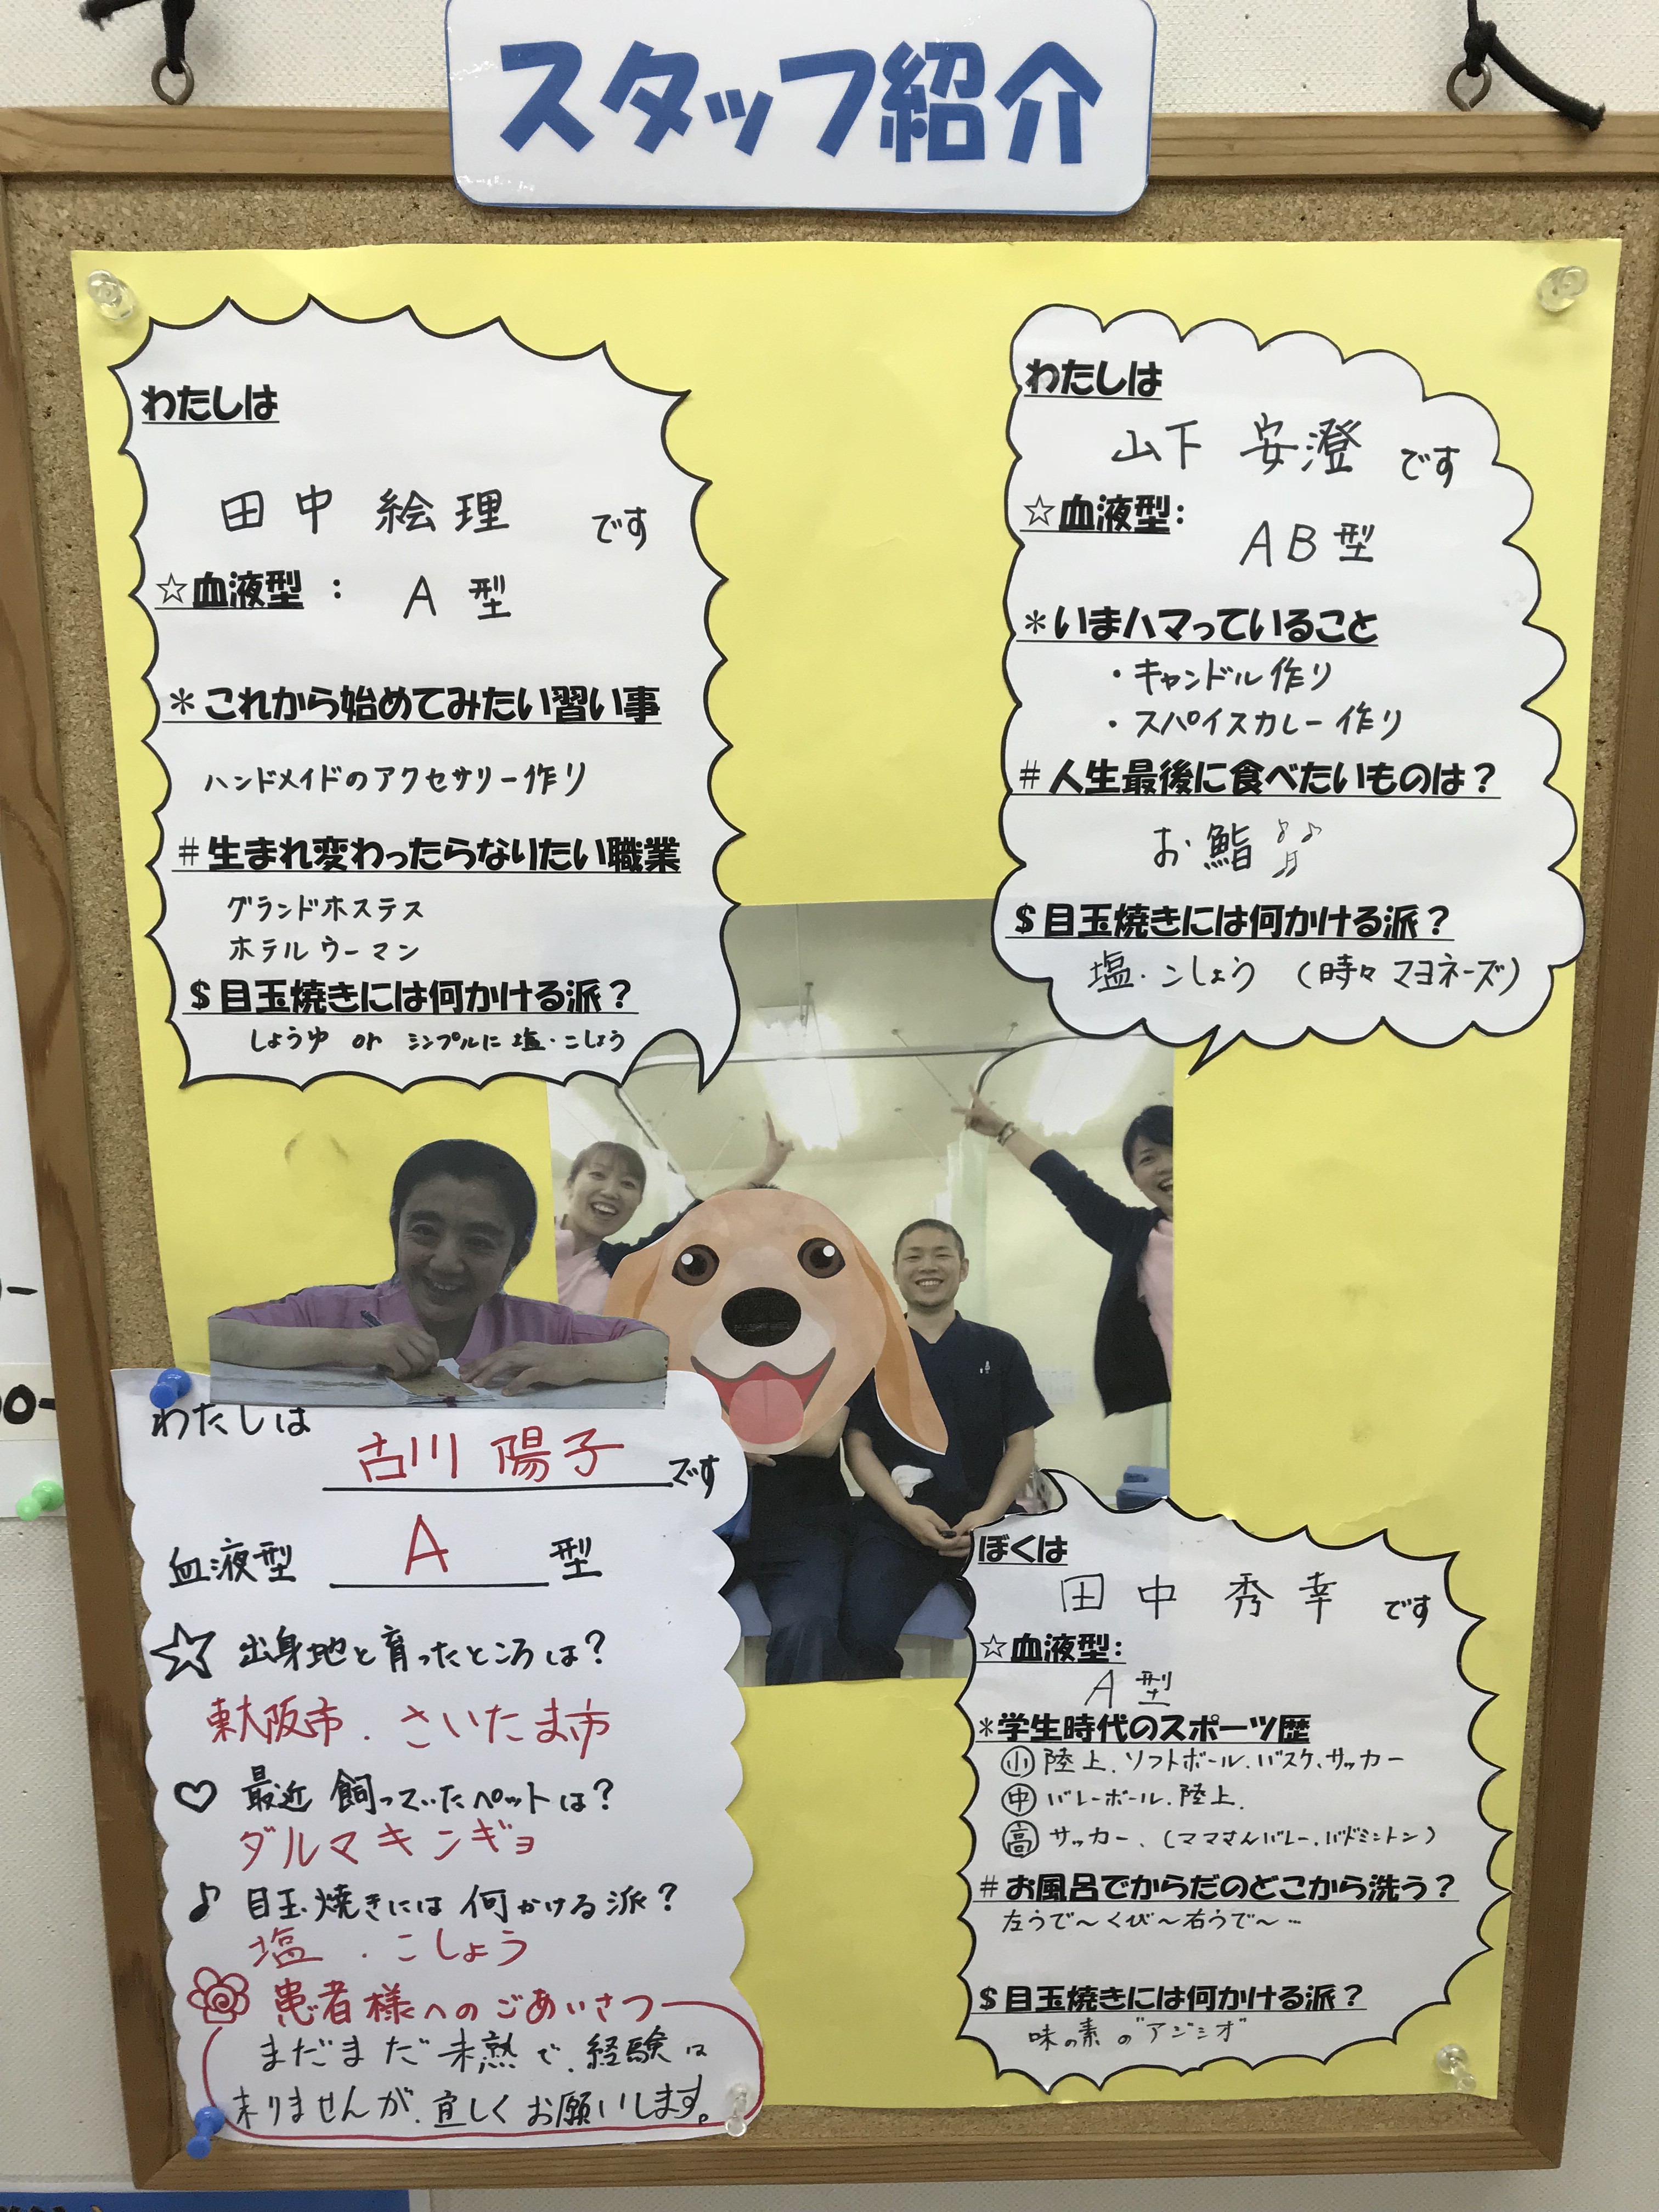 スタッフ紹介
わたしは
田中 絵理 です
☆血液型 : A 型
*これから始めてみたい習い事
ハンドメイドのアクセサリー作り
#生まれ変わったらなりたい職業
グランドホステス
ホテルウーマン
$目玉焼きには何かける派?
しょうゆ or シンプルに 塩・こしょう
わたしは
山下 安澄 です
☆血液型:
AB型
*いまハマっていること
・キャンドル作り
・スパイスカレー作り
#人生最後に食べたいものは?
お鮨♪♪♬
$目玉焼きには何かける派?
塩・こしょう (時々マヨネーズ)
わたしは
古川 陽子 です
血液型 A 型
☆ 出身地と育ったところは?
東大阪市 . さいたま市
♡ 最近 飼っていたペットは?
ダルマキンギョ
♪ 目玉焼きには 何かける派?
塩 . こしょう
患者様へのごあいさつ
まだまだ未熟で、経験は
ありませんが、宜しくお願いします。
ぼくは
田中 秀幸 です
☆血液型:
A型
*学生時代のスポーツ歴
小 陸上、ソフトボール、バスケ、サッカー
中 バレーボール、陸上、
高 サッカー、(ママさんバレー、バドミントン)
#お風呂でからだのどこから洗う?
左うで〜くび〜右うで〜…
$目玉焼きには何かける派?
味の素の"アジシオ"